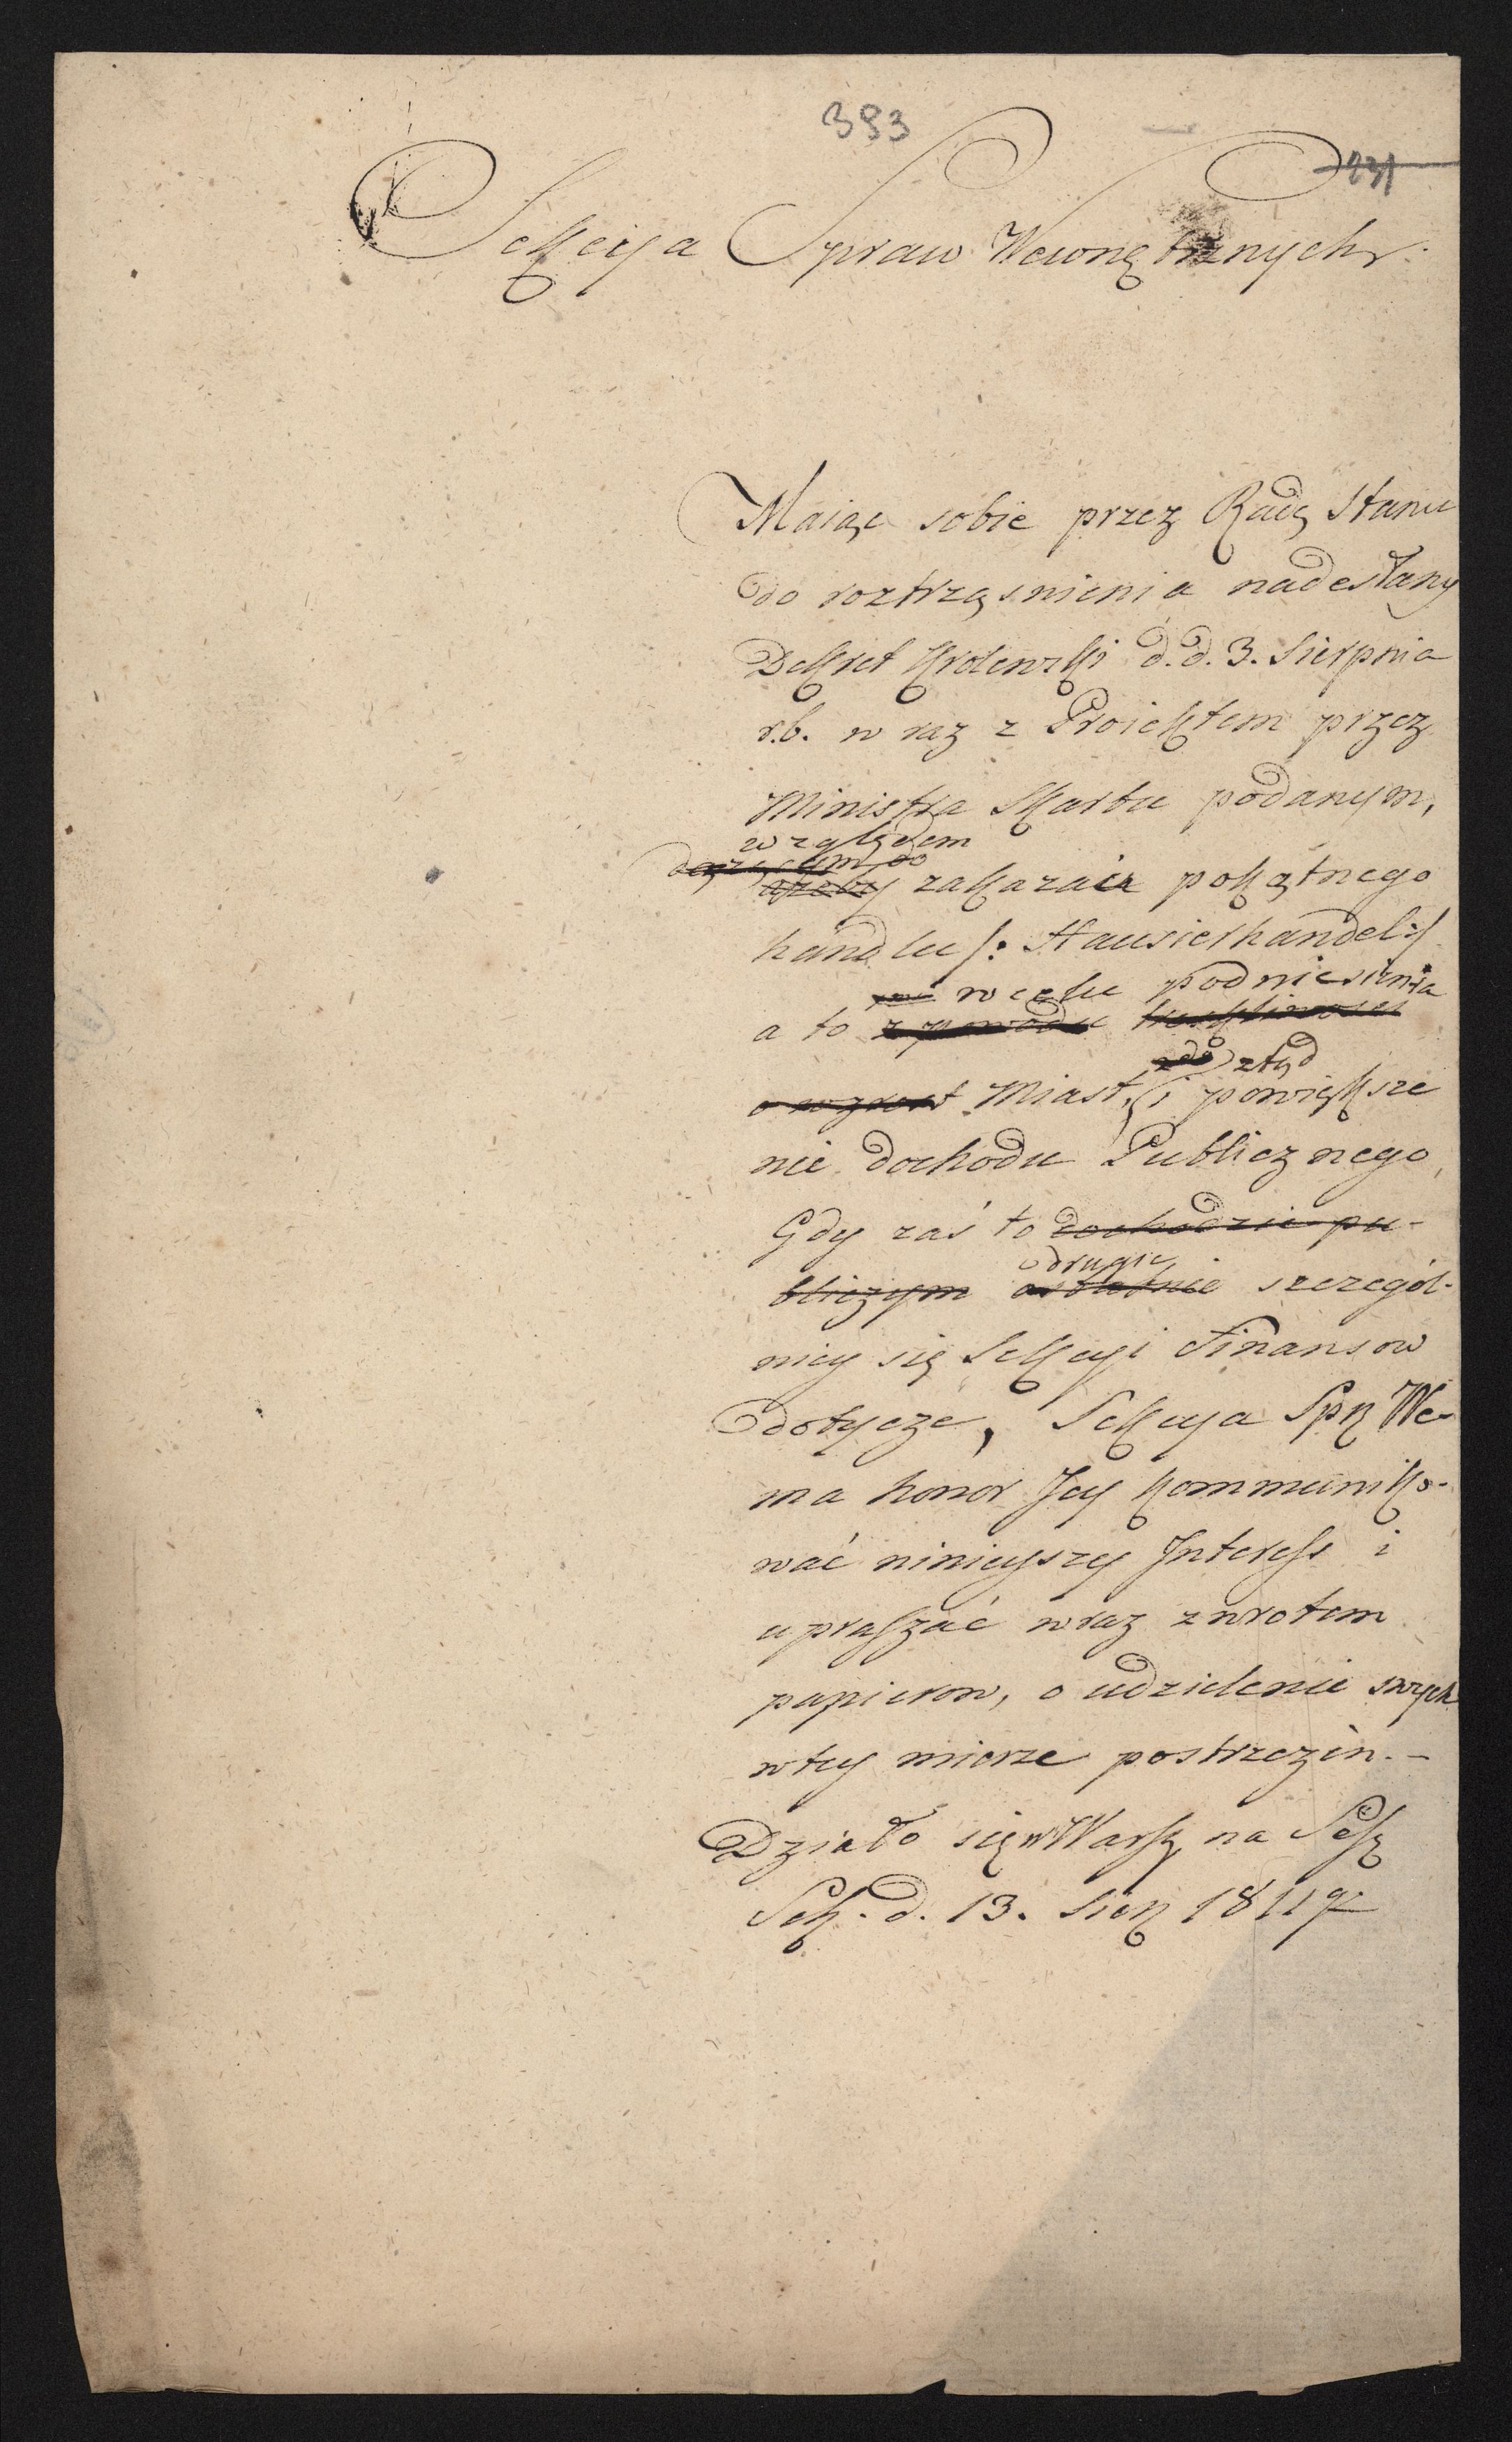 393
231
Sekcija Spraw Wewnętrznych.
Maiąc sobie przez Radę Stanu
do roztrząśnienia nadesłany
Dekret Krolewski d.d. 3. Sierpnia
r.b. w raz z Proiektem przez
Ministra Skarbu podanym,
względem
dążącym do
ażeby zakazair pokątnego
handlu /: Hausierhandel :/
w celu podniesienia
a to z powodu troskliwości
ztąd
o wzrost Miast, i powiększe
nie dochodu Publicznego,
Gdy zaś to dochodzie pu-
drugie
bliczym ostatnie szczegól-
niey się Sekcyi Finansow
dotycze, Sekcya Spr We-
ma honor Jey kommuniko-
wać ninieyszy Interess i
upraszać wraz zwrotem
papierow, o udzielenie swych
wtey mierze postrzeżeń. -
Działo się w Warsz na Sess
Sek. d. 13. Sier 1811 r